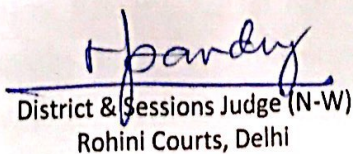 District & Sessions Judge (N-W)
Rohini Courts, Delhi